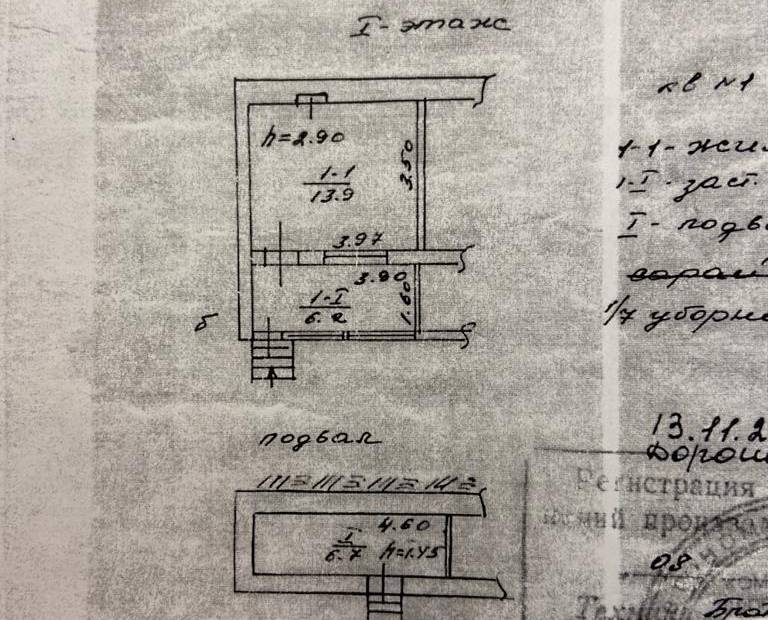 I - этаж
h=2.90
1-1
13.9
3.50
3.97
3.90
1-I
6.2
1.60
б
подвал
4.60
I
6.7
h=1.45
кв №1
1-1- жил
1-I - заст.
I - подв
1/7 уборн
13.11.2
Дорош
Регистрация
08
Техник